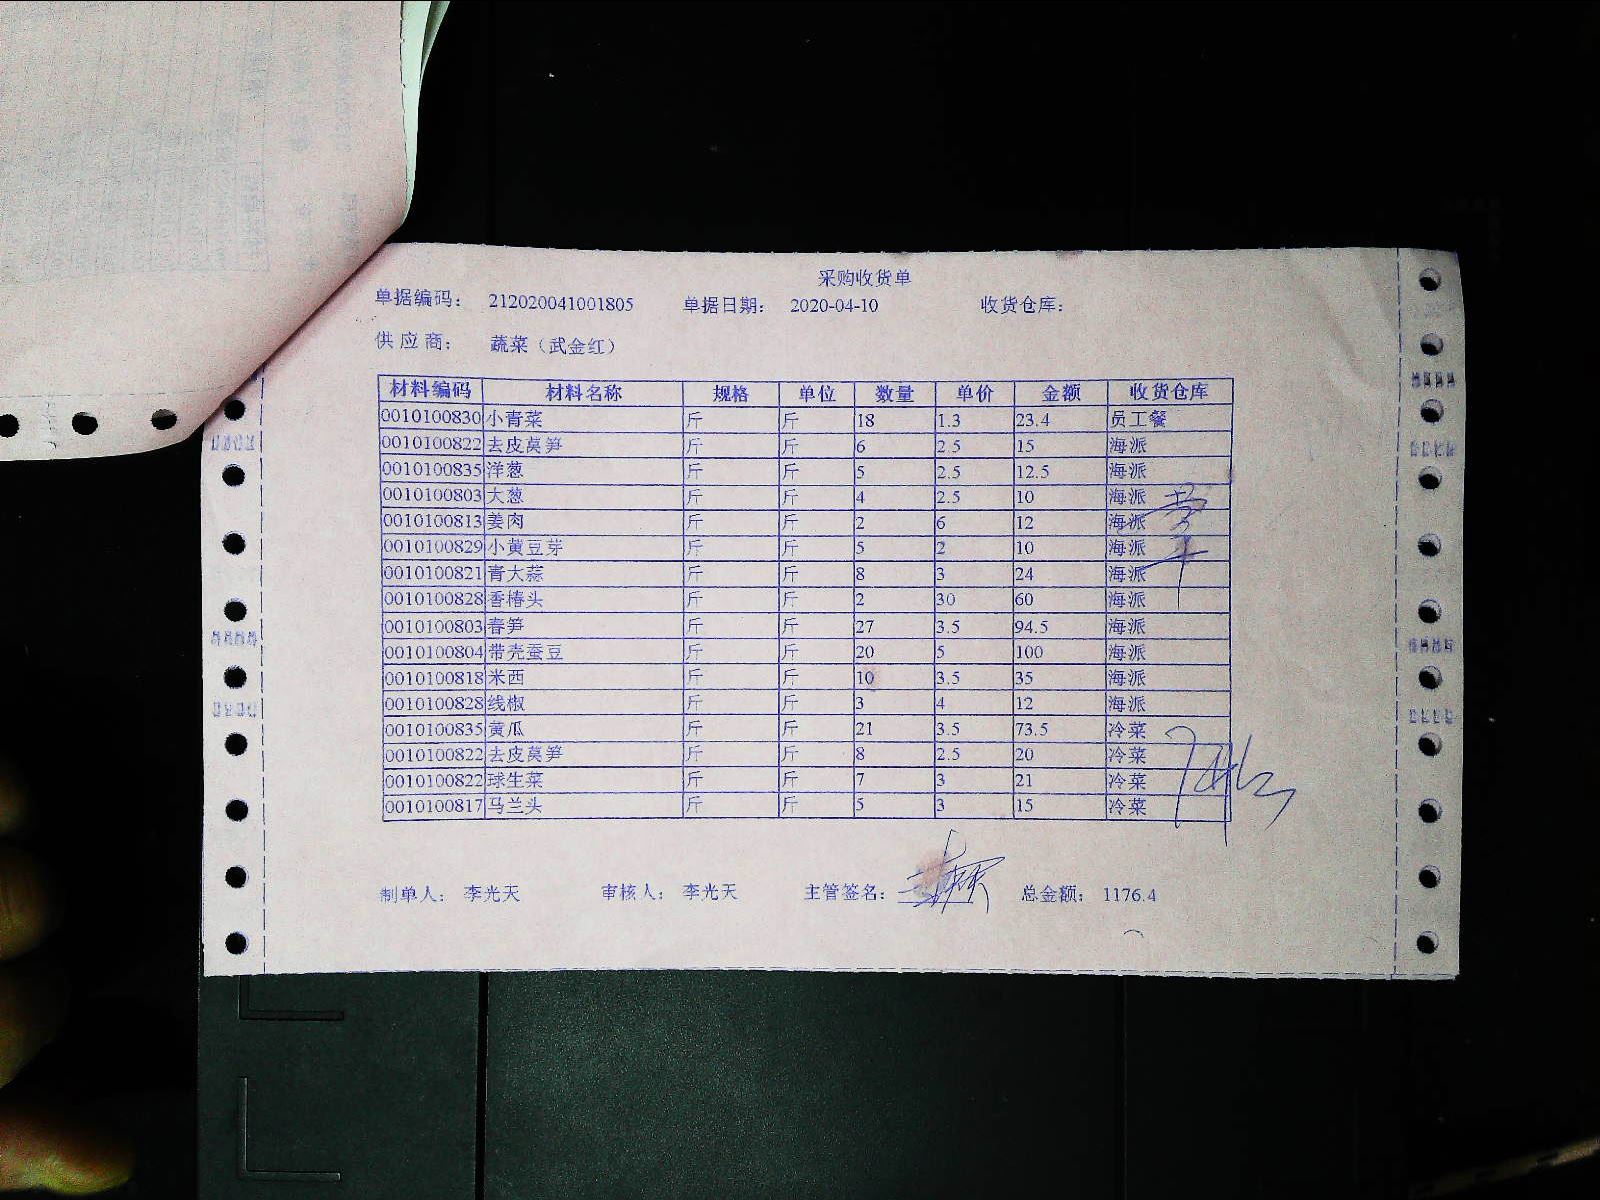 采购收货单
单据编码： 212020041001805 单据日期： 2020-04-10 收货仓库：
供 应 商： 蔬菜（武金红）
材料编码 材料名称 规格 单位 数量 单价 金额 收货仓库
0010100830 小青菜 斤 斤 18 1.3 23.4 员工餐
0010100822 去皮莴笋 斤 斤 6 2.5 15 海派
0010100835 洋葱 斤 斤 5 2.5 12.5 海派
0010100803 大葱 斤 斤 4 2.5 10 海派
0010100813 姜肉 斤 斤 2 6 12 海派
0010100829 小黄豆芽 斤 斤 5 2 10 海派
0010100821 青大蒜 斤 斤 8 3 24 海派
0010100828 香椿头 斤 斤 2 30 60 海派
0010100803 春笋 斤 斤 27 3.5 94.5 海派
0010100804 带壳蚕豆 斤 斤 20 5 100 海派
0010100818 米西 斤 斤 10 3.5 35 海派
0010100828 线椒 斤 斤 3 4 12 海派
0010100835 黄瓜 斤 斤 21 3.5 73.5 冷菜
0010100822 去皮莴笋 斤 斤 8 2.5 20 冷菜
0010100822 球生菜 斤 斤 7 3 21 冷菜
0010100817 马兰头 斤 斤 5 3 15 冷菜
制单人： 李光天 审核人： 李光天 主管签名： 总金额： 1176.4